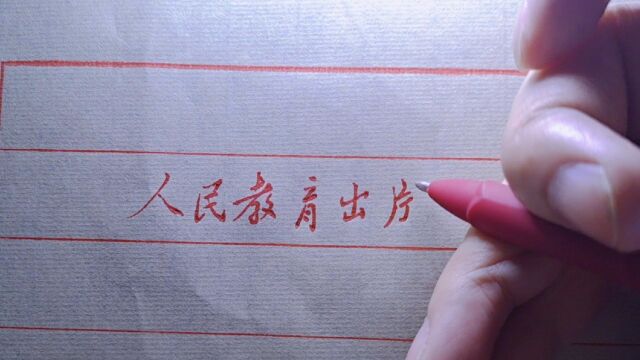 人民教育出片